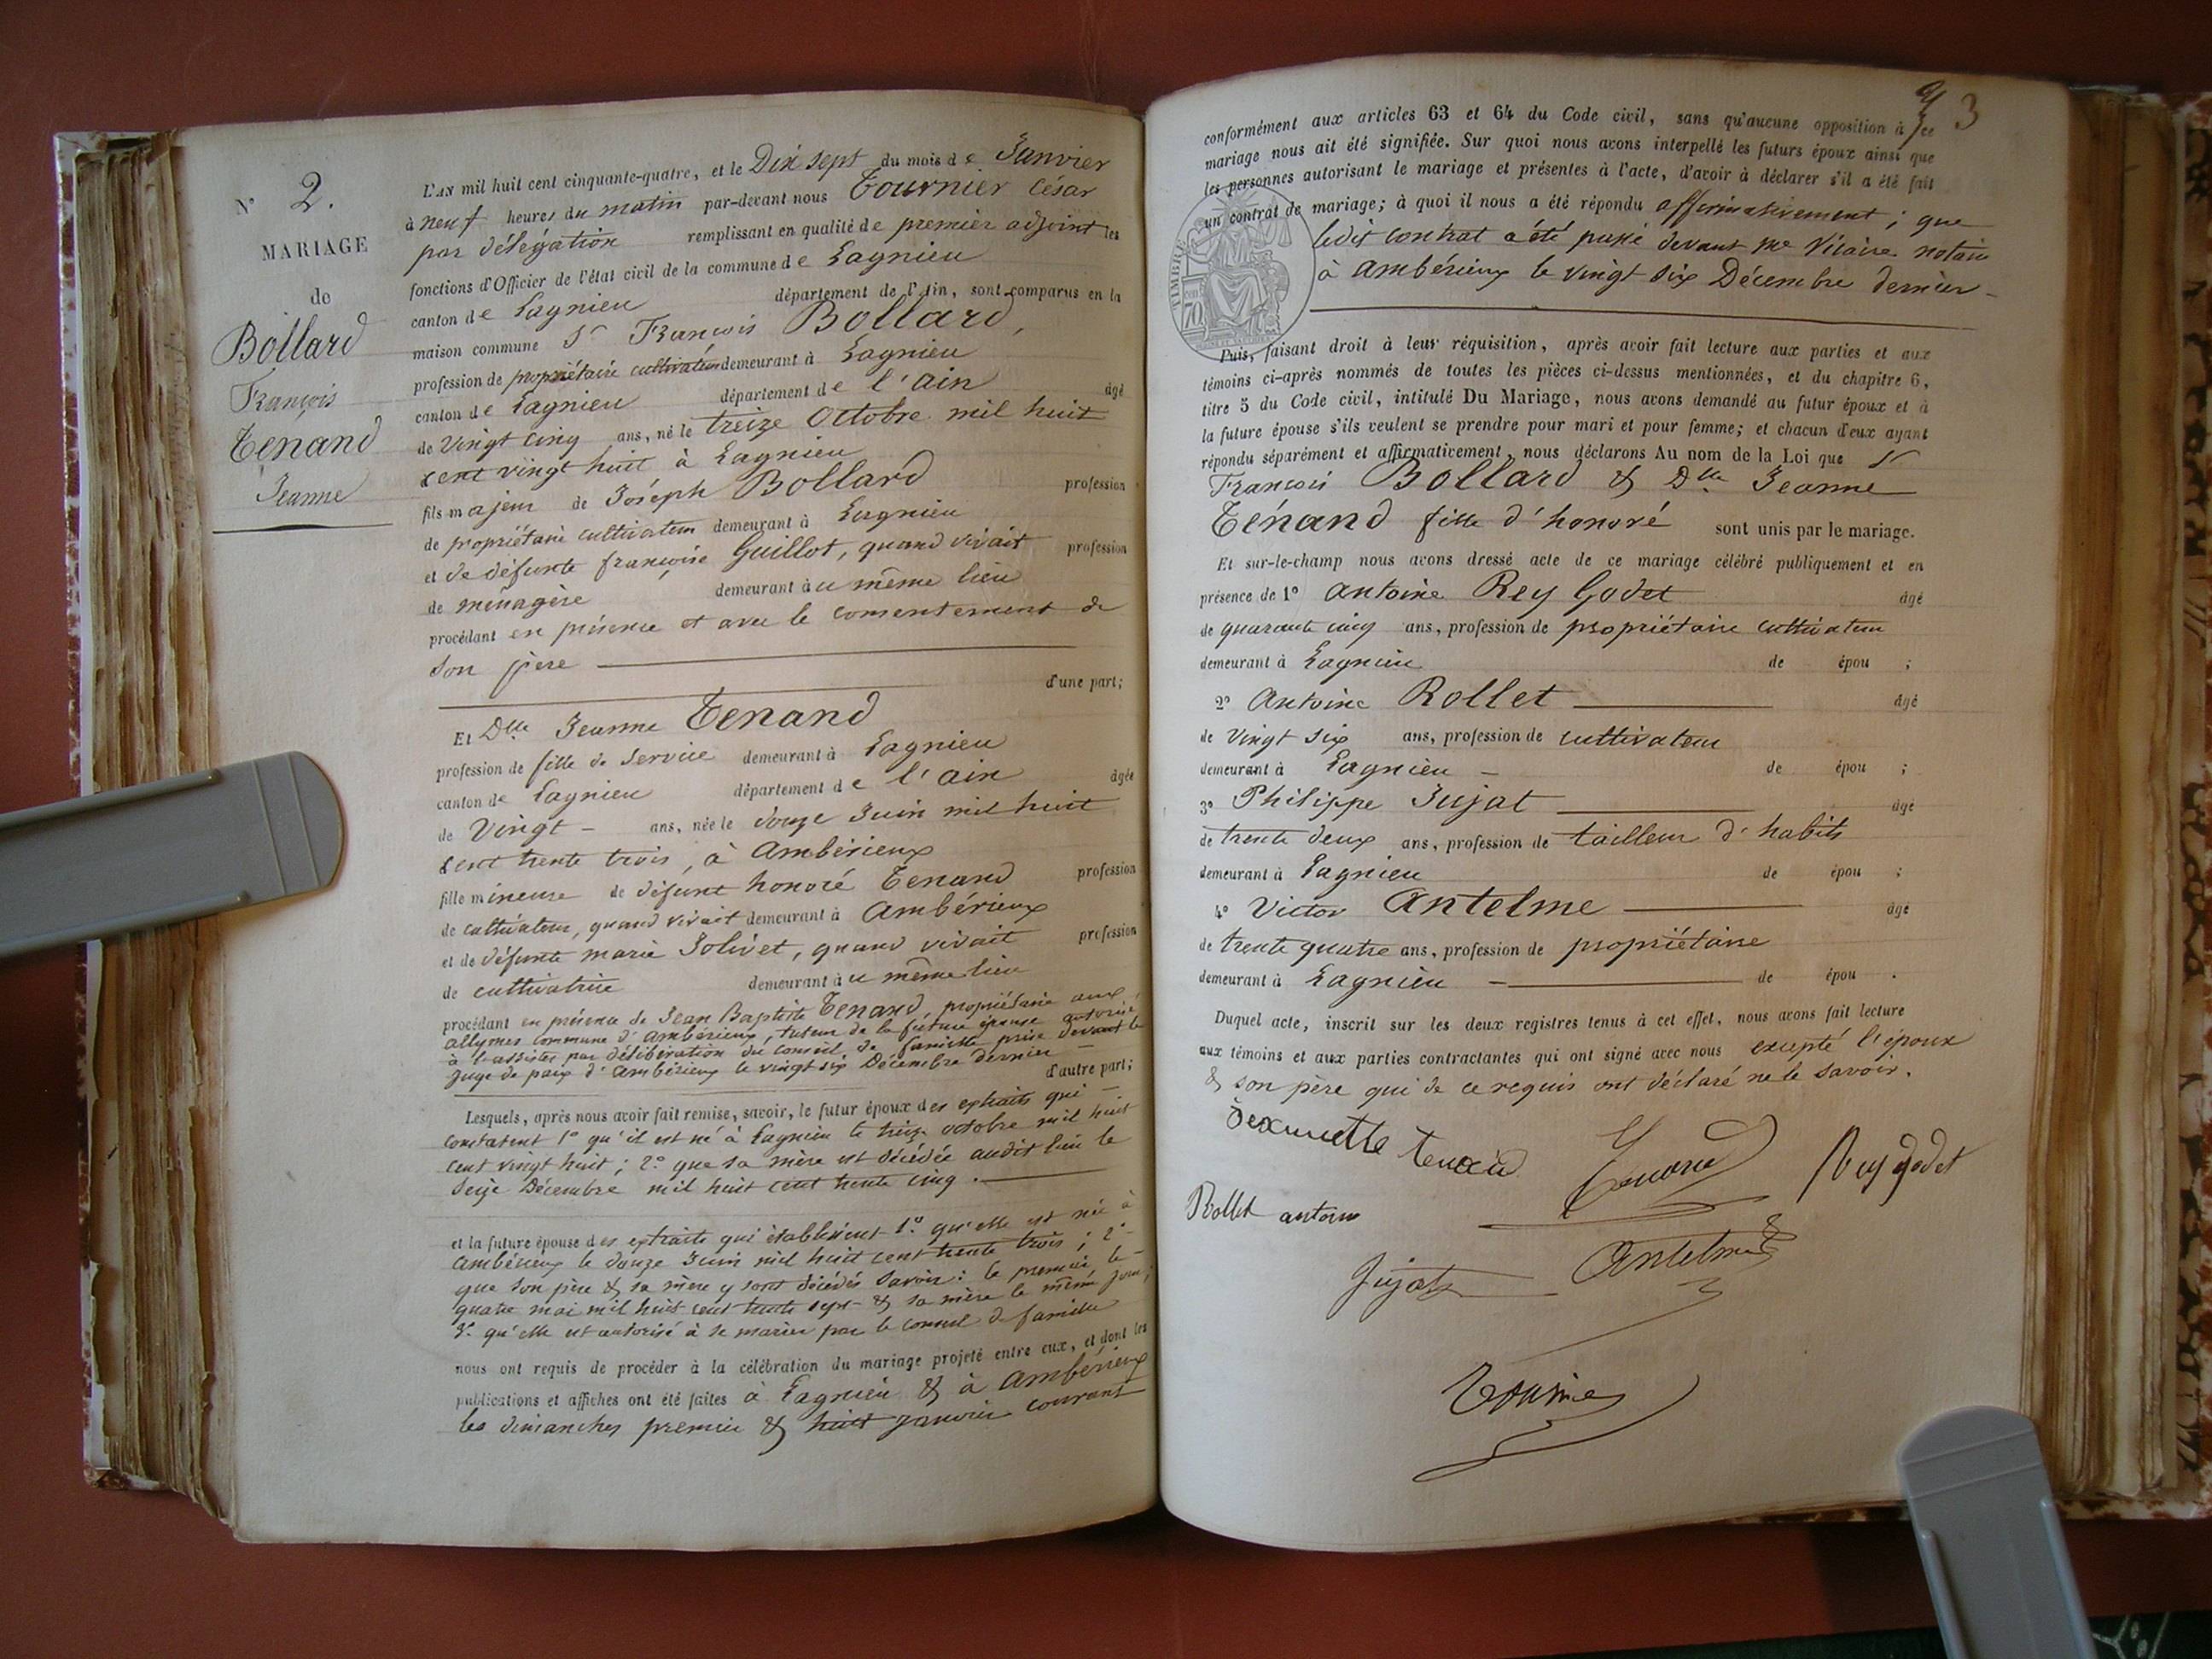 N° 2.
MARIAGE
de
Bollard
François
Tenand
Jeanne
L'AN mil huit cent cinquante-quatre, et le Dix sept du mois de Janvier
à neuf heures du matin par-devant nous Tournier César
par délégation remplissant en qualité de premier adjoint les
fonctions d'Officier de l'état civil de la commune de Lagnieu
canton de Lagnieu département de l'Ain, sont comparus en la
maison commune Sr François Bollard,
profession de propriétaire cultivateur demeurant à Lagnieu
canton de Lagnieu département de l'ain âgé
de vingt cinq ans, né le treize Octobre mil huit
cent vingt huit à Lagnieu
fils majeur de Joseph Bollard profession
de propriétaire cultivateur demeurant à Lagnieu
et de défunte françoise Guillot, quand vivait profession
de ménagère demeurant au même lieu
procédant en présence et avec le consentement de
son père
d'une part;
Et Dlle Jeanne Tenand
profession de fille de service demeurant à Lagnieu
canton de Lagnieu département de l'ain âgée
de Vingt - ans, née le douze Juin mil huit
cent trente trois, à Ambérieux
fille mineure de défunt honoré Tenand profession
de cultivateur, quand vivait demeurant à Ambérieux
et de défunte marie Jolivet, quand vivait profession
de cultivatrice demeurant au même lieu
procédant en présence de Jean Baptiste Tenand, propriétaire aux
allymes commune d'Ambérieux, tuteur de la future épouse autorisé
à l'assister par délibération du conseil de famille prise devant le
Juge de paix d'Ambérieux le vingt six Décembre dernier -
d'autre part;
Lesquels, après nous avoir fait remise, savoir, le futur époux des extraits qui
constatent 1° qu'il est né à Lagnieu le treize octobre mil huit
cent vingt huit; 2° que sa mère est décédée audit lieu le
seize Décembre mil huit cent trente cinq.
et la future épouse des extraits qui établissent 1° qu'elle est née à
Ambérieux le douze Juin mil huit cent trente trois; 2°
que son père & sa mère y sont décédés savoir: le premier, le
quatre mai mil huit cent trente sept & sa mère le même jour;
3° qu'elle est autorisé à se marier par le conseil de famille
nous ont requis de procéder à la célébration du mariage projeté entre eux, et dont les
publications et affiches ont été faites à Lagnieu & à Ambérieux
les dimanches premier & huit janvier courant
3
conformément aux articles 63 et 64 du Code civil, sans qu'aucune opposition à ce
mariage nous ait été signifiée. Sur quoi nous avons interpellé les futurs époux ainsi que
les personnes autorisant le mariage et présentes à l'acte, d'avoir à déclarer s'il a été fait
un contrat de mariage; à quoi il nous a été répondu affirmativement; que
ledit contrat a été passé devant Me Vilaire notaire
à Ambérieux le vingt six Décembre dernier -
TIMBRE
70
Puis, faisant droit à leur réquisition, après avoir fait lecture aux parties et aux
témoins ci-après nommés de toutes les pièces ci-dessus mentionnées, et du chapitre 6,
titre 5 du Code civil, intitulé Du Mariage, nous avons demandé au futur époux et à
la future épouse s'ils veulent se prendre pour mari et pour femme; et chacun d'eux ayant
répondu séparément et affirmativement, nous déclarons Au nom de la Loi que Sr
François Bollard & Dlle Jeanne
Tenand fille d'honoré sont unis par le mariage.
Et sur-le-champ nous avons dressé acte de ce mariage célébré publiquement et en
présence de 1° Antoine Rey Godet âgé
de quarante cinq ans, profession de propriétaire cultivateur
demeurant à Lagnieu de épou ;
2° Antoine Rollet âgé
de vingt six ans, profession de cultivateur
demeurant à Lagnieu - de épou ;
3° Philippe Jujat âgé
de trente deux ans, profession de tailleur d'habits
demeurant à Lagnieu de épou ;
4° Victor Antelme âgé
de trente quatre ans, profession de propriétaire
demeurant à Lagnieu de épou .
Duquel acte, inscrit sur les deux registres tenus à cet effet, nous avons fait lecture
aux témoins et aux parties contractantes qui ont signé avec nous excepté l'époux
& son père qui de ce requis ont déclaré ne le savoir.
Tenand Rey godet
Rollet antoine
Jujat Antelme
Tournier